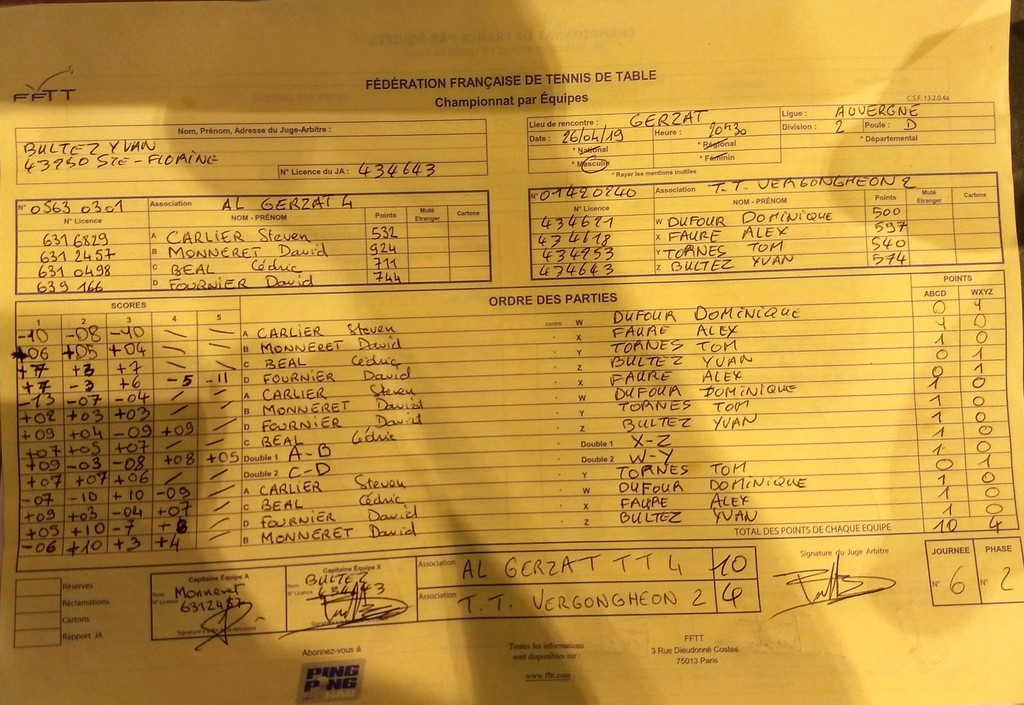 FFTT
FÉDÉRATION FRANÇAISE DE TENNIS DE TABLE
Championnat par Équipes
C.S.F. 13.2.0.4a
Nom, Prénom, Adresse du Juge-Arbitre :
BULTEZ YVAN
43250 STE-FLORINE
N° Licence du JA : 434643
Lieu de rencontre : GERZAT
Ligue : AUVERGNE
Date : 26/04/19 Heure : 20h30
Division : 2 Poule : D
* National * Régional * Départemental
* Masculin * Féminin
* Rayer les mentions inutiles
N° 0563 0301 Association AL GERZAT 4
N° Licence NOM - PRÉNOM Points Muté Etranger Cartons
631 6829 A CARLIER Steven 532
631 2457 B MONNERET David 924
631 0498 C BEAL Cédric 711
639 166 D FOURNIER David 744
N° 01420240 Association T.T. VERGONGHEON 2
N° Licence NOM - PRÉNOM Points Muté Etranger Cartons
434621 W DUFOUR DOMINIQUE 500
434618 X FAURE ALEX 597
434953 Y TORNES TOM 540
434643 Z BULTEZ YVAN 574
SCORES ORDRE DES PARTIES POINTS
1 2 3 4 5 ABCD WXYZ
-10 -08 -10 / / A CARLIER Steven contre W DUFOUR DOMINIQUE 0 1
+06 +05 +04 / / B MONNERET David X FAURE ALEX 1 0
+7 +3 +7 / / C BEAL Cédric Y TORNES TOM 1 0
+7 -3 +6 -5 -11 D FOURNIER David Z BULTEZ YVAN 0 1
-13 -07 -04 / / A CARLIER Steven X FAURE ALEX 0 1
+02 +03 +03 / / B MONNERET David W DUFOUR DOMINIQUE 1 0
+09 +04 -09 +09 / D FOURNIER David Y TORNES TOM 1 0
+07 +05 +07 / / C BEAL Cédric Z BULTEZ YVAN 1 0
+09 -03 -08 +08 +05 Double 1 A-B Double 1 X-Z 1 0
+07 +07 +06 / / Double 2 C-D Double 2 W-Y 1 0
-07 -10 +10 -09 A CARLIER Steven Y TORNES TOM 0 1
+09 +03 -04 +07 C BEAL Cédric W DUFOUR DOMINIQUE 1 0
+09 +10 -7 +8 D FOURNIER David X FAURE ALEX 1 0
-06 +10 +3 +4 B MONNERET David Z BULTEZ YVAN 1 0
TOTAL DES POINTS DE CHAQUE EQUIPE 10 4
Réserves
Réclamations
Cartons
Rapport JA
Capitaine Équipe A
Nom Monneret
N° Licence 6312457
Capitaine Équipe X
Nom BULTEZ
N° Licence 434643
Association AL GERZAT TT 4 10
Association T.T. VERGONGHEON 2 4
Signature du Juge Arbitre
JOURNEE PHASE
N° 6 N° 2
Abonnez-vous à
PING PONG MAG
Toutes les informations
sont disponibles sur :
www.fftt.com
FFTT
3 Rue Dieudonné Costes
75013 Paris